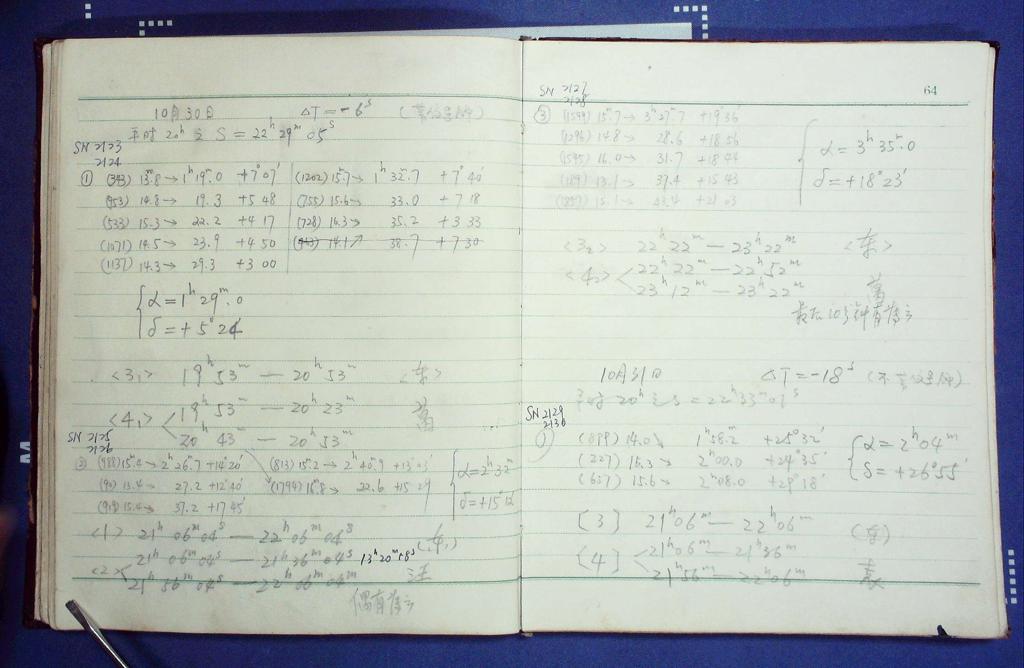 10月30日 ΔT=-6ˢ
平时 20ʰ 之 S = 22ʰ 29ᵐ 05ˢ
SN 2123
2124
① 13.8→ 1ʰ19ᵐ.0 +7°07′ (1202) 15ᵐ.7→ 1ʰ32ᵐ.7 +7°40′
(953) 14.8→ 19.3 +5 48 (755) 15.6→ 33.0 +7 18
(533) 15.3→ 22.2 +4 17 (728) 16.3→ 35.2 +3 33
(1071) 14.5→ 23.9 +4 50 14.1 38.7 +7 30
(1137) 14.3→ 29.3 +3 00
α=1ʰ29ᵐ.0
δ=+5°24′
<3₁> 19ʰ53ᵐ — 20ʰ53ᵐ
<4₁> 19ʰ53ᵐ — 20ʰ23ᵐ
20ʰ43ᵐ — 20ʰ53ᵐ
SN 2125
2126
② (988) 15ᵐ.4→ 2ʰ26ᵐ.7 +14°20′ (813) 15.2→ 2ʰ40ᵐ.9
13.4→ 27.2 +12°40′ (1799) 16.8→ 22.6
15.4→ 37.2 +17 45′
α=2ʰ32ᵐ
δ=+15°12′
<1> 21ʰ06ᵐ04ˢ — 22ʰ06ᵐ04ˢ
<2> 21ʰ06ᵐ04ˢ — 21ʰ36ᵐ04ˢ 13ʰ20ᵐ58ˢ
21ʰ56ᵐ04ˢ — 22ʰ06ᵐ04ᵐ 汪
偶有薄云
64
SN 2127
2128
③ (1599) 15ᵐ.7→ 3ʰ27ᵐ.7 +19°36′
(1296) 14.8→ 28.6 +18 56
(1595) 16.0→ 31.7 +18 44
13.1→ 37.4 +15 43
15.1→ 43.4 +21 03
α=3ʰ35ᵐ.0
δ=+18°23′
<3₂> 22ʰ22ᵐ — 23ʰ22ᵐ
<4₂> 22ʰ22ᵐ — 22ʰ52ᵐ
23ʰ12ᵐ — 23ʰ22ᵐ
最后10分钟有薄云
10月31日 ΔT=-18ˢ
平时 20ʰ 之 S = 22ʰ33ᵐ01ˢ
SN 2129
2130
① 14.0→ 1ʰ58.2 +25°32′
(227) 16.3→ 2ʰ00.0 +24°35′
(657) 15.6→ 2ʰ08.0 +29°18′
α=2ʰ04ᵐ
δ=+26°55′
[3] 21ʰ06ᵐ — 22ʰ06ᵐ
[4] 21ʰ06ᵐ — 21ʰ36ᵐ
21ʰ56ᵐ — 22ʰ06ᵐ